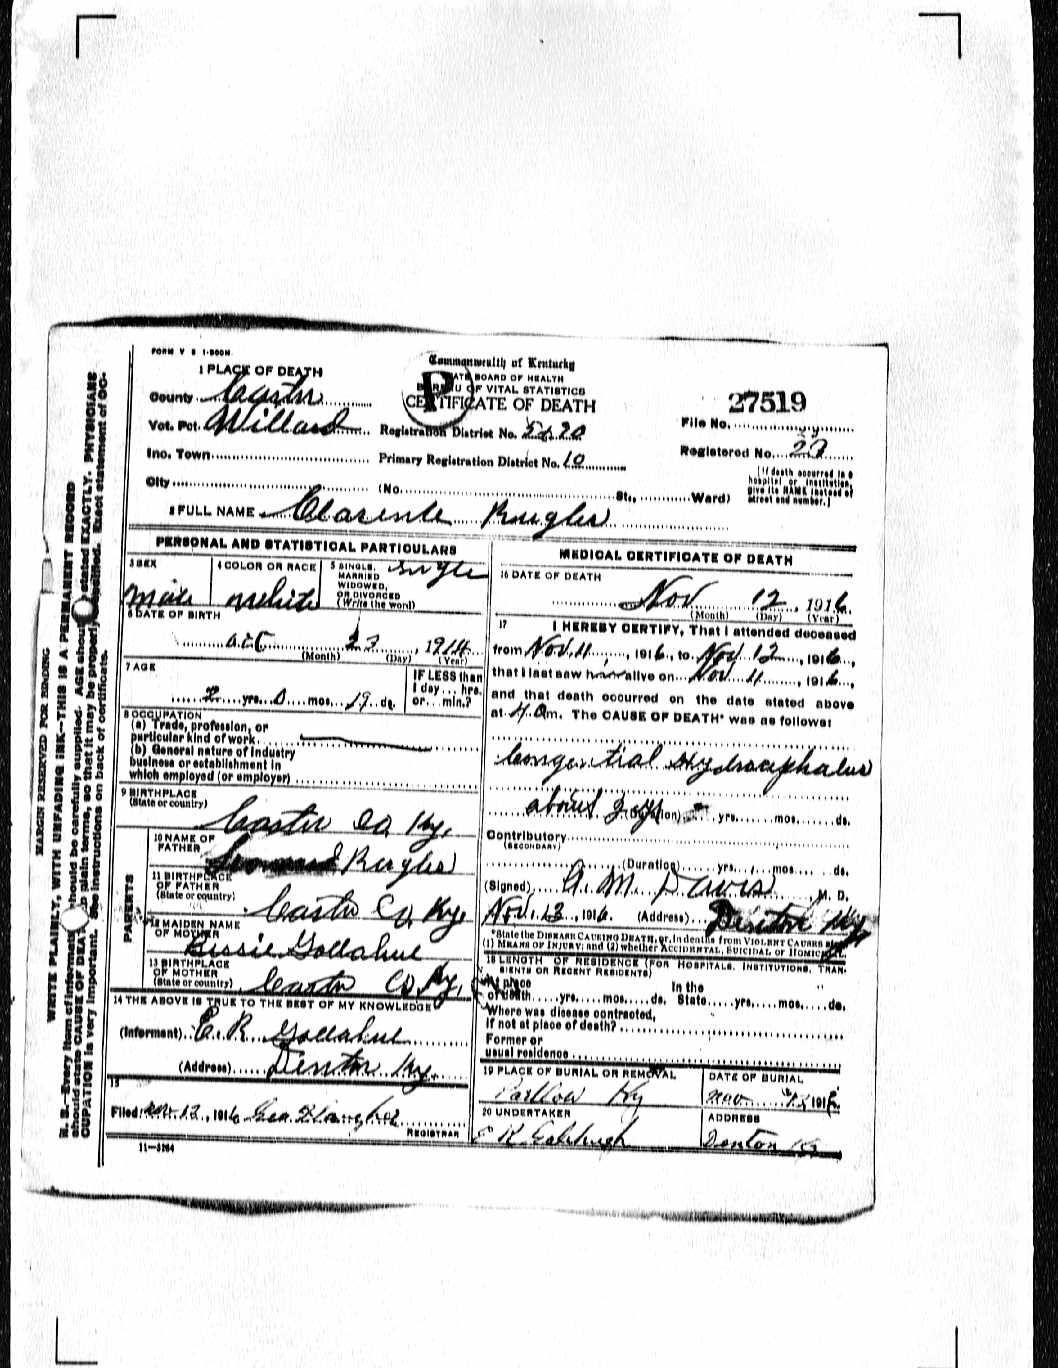 FORM V S 1-500M
1 PLACE OF DEATH
Commonwealth of Kentucky
STATE BOARD OF HEALTH
BUREAU OF VITAL STATISTICS
CERTIFICATE OF DEATH
P
County Carter
Vot. Pct. Willard
Registration District No.
27519
File No.
Inc. Town
Primary Registration District No. 10
Registered No.
City
(No. St., Ward)
[If death occurred in a
hospital or institution,
give its NAME instead of
street and number.]
2 FULL NAME Clarence Rugles
PERSONAL AND STATISTICAL PARTICULARS
3 SEX
Male
4 COLOR OR RACE
White
5 SINGLE,
MARRIED
WIDOWED,
OR DIVORCED
(Write the word)
Single
6 DATE OF BIRTH
Oct 23, 1914
(Month) (Day) (Year)
7 AGE
2 yrs. 0 mos. 19 ds.
IF LESS than
1 day ... hrs.
or ... min.?
8 OCCUPATION
(a) Trade, profession, or
particular kind of work
(b) General nature of industry
business or establishment in
which employed (or employer)
9 BIRTHPLACE
(State or country)
Carter Co Ky.
PARENTS
10 NAME OF
FATHER
Rugles
11 BIRTHPLACE
OF FATHER
(State or country)
Carter Co, Ky.
12 MAIDEN NAME
OF MOTHER
Bessie Gollahue
13 BIRTHPLACE
OF MOTHER
(State or country)
Carter Co, Ky,
14 THE ABOVE IS TRUE TO THE BEST OF MY KNOWLEDGE
(Informant) E. R. Gollahue
(Address) Denton Ky.
15
Filed Nov. 13, 1916 Geo
REGISTRAR
11-3184
MEDICAL CERTIFICATE OF DEATH
16 DATE OF DEATH
Nov 12, 1916
(Month) (Day) (Year)
17 I HEREBY CERTIFY, That I attended deceased
from Nov. 11, 1916, to Nov. 12, 1916,
that I last saw alive on Nov 11, 1916,
and that death occurred on the date stated above
at 4 a m. The CAUSE OF DEATH* was as follows:
Congenitial Hydrocephalus
about 2 yr (Duration) yrs. mos. ds.
Contributory
(SECONDARY)
(Duration) yrs. mos. ds.
(Signed) M. Davis M. D.
Nov. 13, 1916. (Address) Denton Ky
*State the DISEASE CAUSING DEATH, or, in deaths from VIOLENT CAUSES state
(1) MEANS OF INJURY; and (2) whether ACCIDENTAL, SUICIDAL or HOMICIDAL.
18 LENGTH OF RESIDENCE (FOR HOSPITALS, INSTITUTIONS, TRAN-
SIENTS OR RECENT RESIDENTS)
At place In the
of death yrs. mos. ds. State yrs. mos. ds.
Where was disease contracted,
if not at place of death?
Former or
usual residence
19 PLACE OF BURIAL OR REMOVAL
Ky
DATE OF BURIAL
Nov 1916
20 UNDERTAKER
E R
ADDRESS
Denton Ky
MARGIN RESERVED FOR BINDING
WRITE PLAINLY, WITH UNFADING INK—THIS IS A PERMANENT RECORD
N. B.—Every item of information should be carefully supplied. AGE should be stated EXACTLY. PHYSICIANS
should state CAUSE OF DEATH in plain terms, so that it may be properly classified. Exact statement of OC-
CUPATION is very important. See instructions on back of certificate.